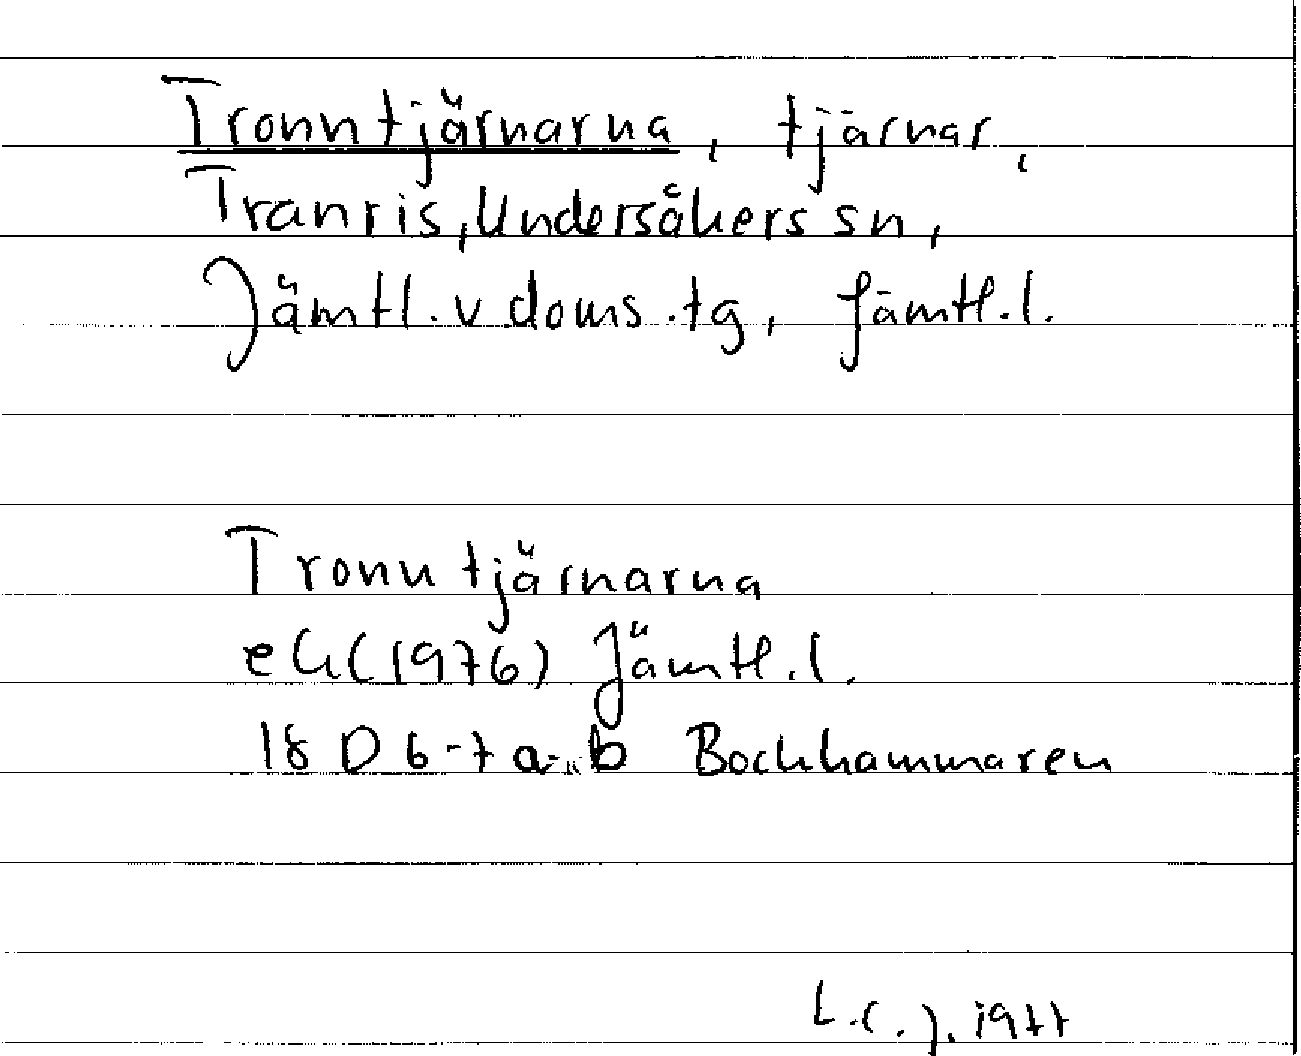 Tronntjärnarna, tjärnar,
Tranris, Undersåkers sn,
Jämtl. v doms.tg, Jämtl.l.
Tronntjärnarna
ek (1976) Jämtl.l.
18 D 6-7 a-b Bockhammaren
L.C.J. 1977